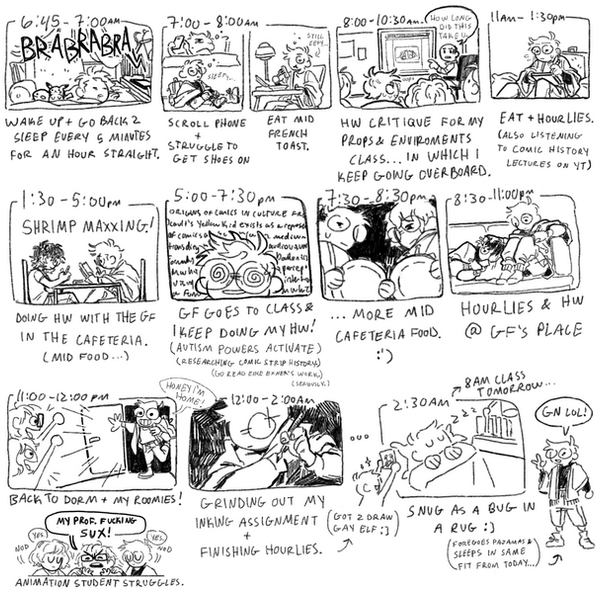 6:45 - 7:00am
BRABRABRA
WAKE UP + GO BACK 2
SLEEP EVERY 5 MINUTES
FOR AN HOUR STRAIGHT.
7:00 - 8:00am
SLEEPY...
STILL
EEPY...
SCROLL PHONE
+
STRUGGLE TO
GET SHOES ON
EAT MID
FRENCH
TOAST.
8:00 - 10:30am.
HOW LONG
DID THIS
TAKE U..
HW CRITIQUE FOR MY
PROPS & ENVIROMENTS
CLASS... IN WHICH I
KEEP GOING OVERBOARD.
11am - 1:30pm
EAT + HOURLIES.
(ALSO LISTENING
TO COMIC HISTORY
LECTURES ON YT)
1:30 - 5:00pm
SHRIMP MAXXING!
DOING HW WITH THE GF
IN THE CAFETERIA.
(MID FOOD...)
5:00 - 7:30pm
ORIGINS OF COMICS IN CULTURE
Yellow Kid exists as a
of comics
GF GOES TO CLASS &
I KEEP DOING MY HW!
(AUTISM POWERS ACTIVATE)
(RESEARCHING COMIC STRIP HISTORY)
(GO READ EIKE EXNER'S WORK)
(SERIOUSLY.)
7:30 - 8:30pm
... MORE MID
CAFETERIA FOOD.
:')
8:30 - 11:00pm
HOURLIES & HW
@ GF'S PLACE
11:00 - 12:00 pm
HONEY I'M
HOME!
BACK TO DORM + MY ROOMIES!
MY PROF. FUCKING
SUX!
YES.
NOD
YES.
NOD
ANIMATION STUDENT STRUGGLES.
12:00 - 2:00am
GRINDING OUT MY
INKING ASSIGNMENT
+
FINISHING HOURLIES.
(GOT 2 DRAW
GAY ELF :])
2:30AM
zzz
8AM CLASS
TOMORROW...
SNUG AS A BUG IN
A RUG :]
GN LOL!
(FOREGOES PAJAMAS &
SLEEPS IN SAME
FIT FROM TODAY...)